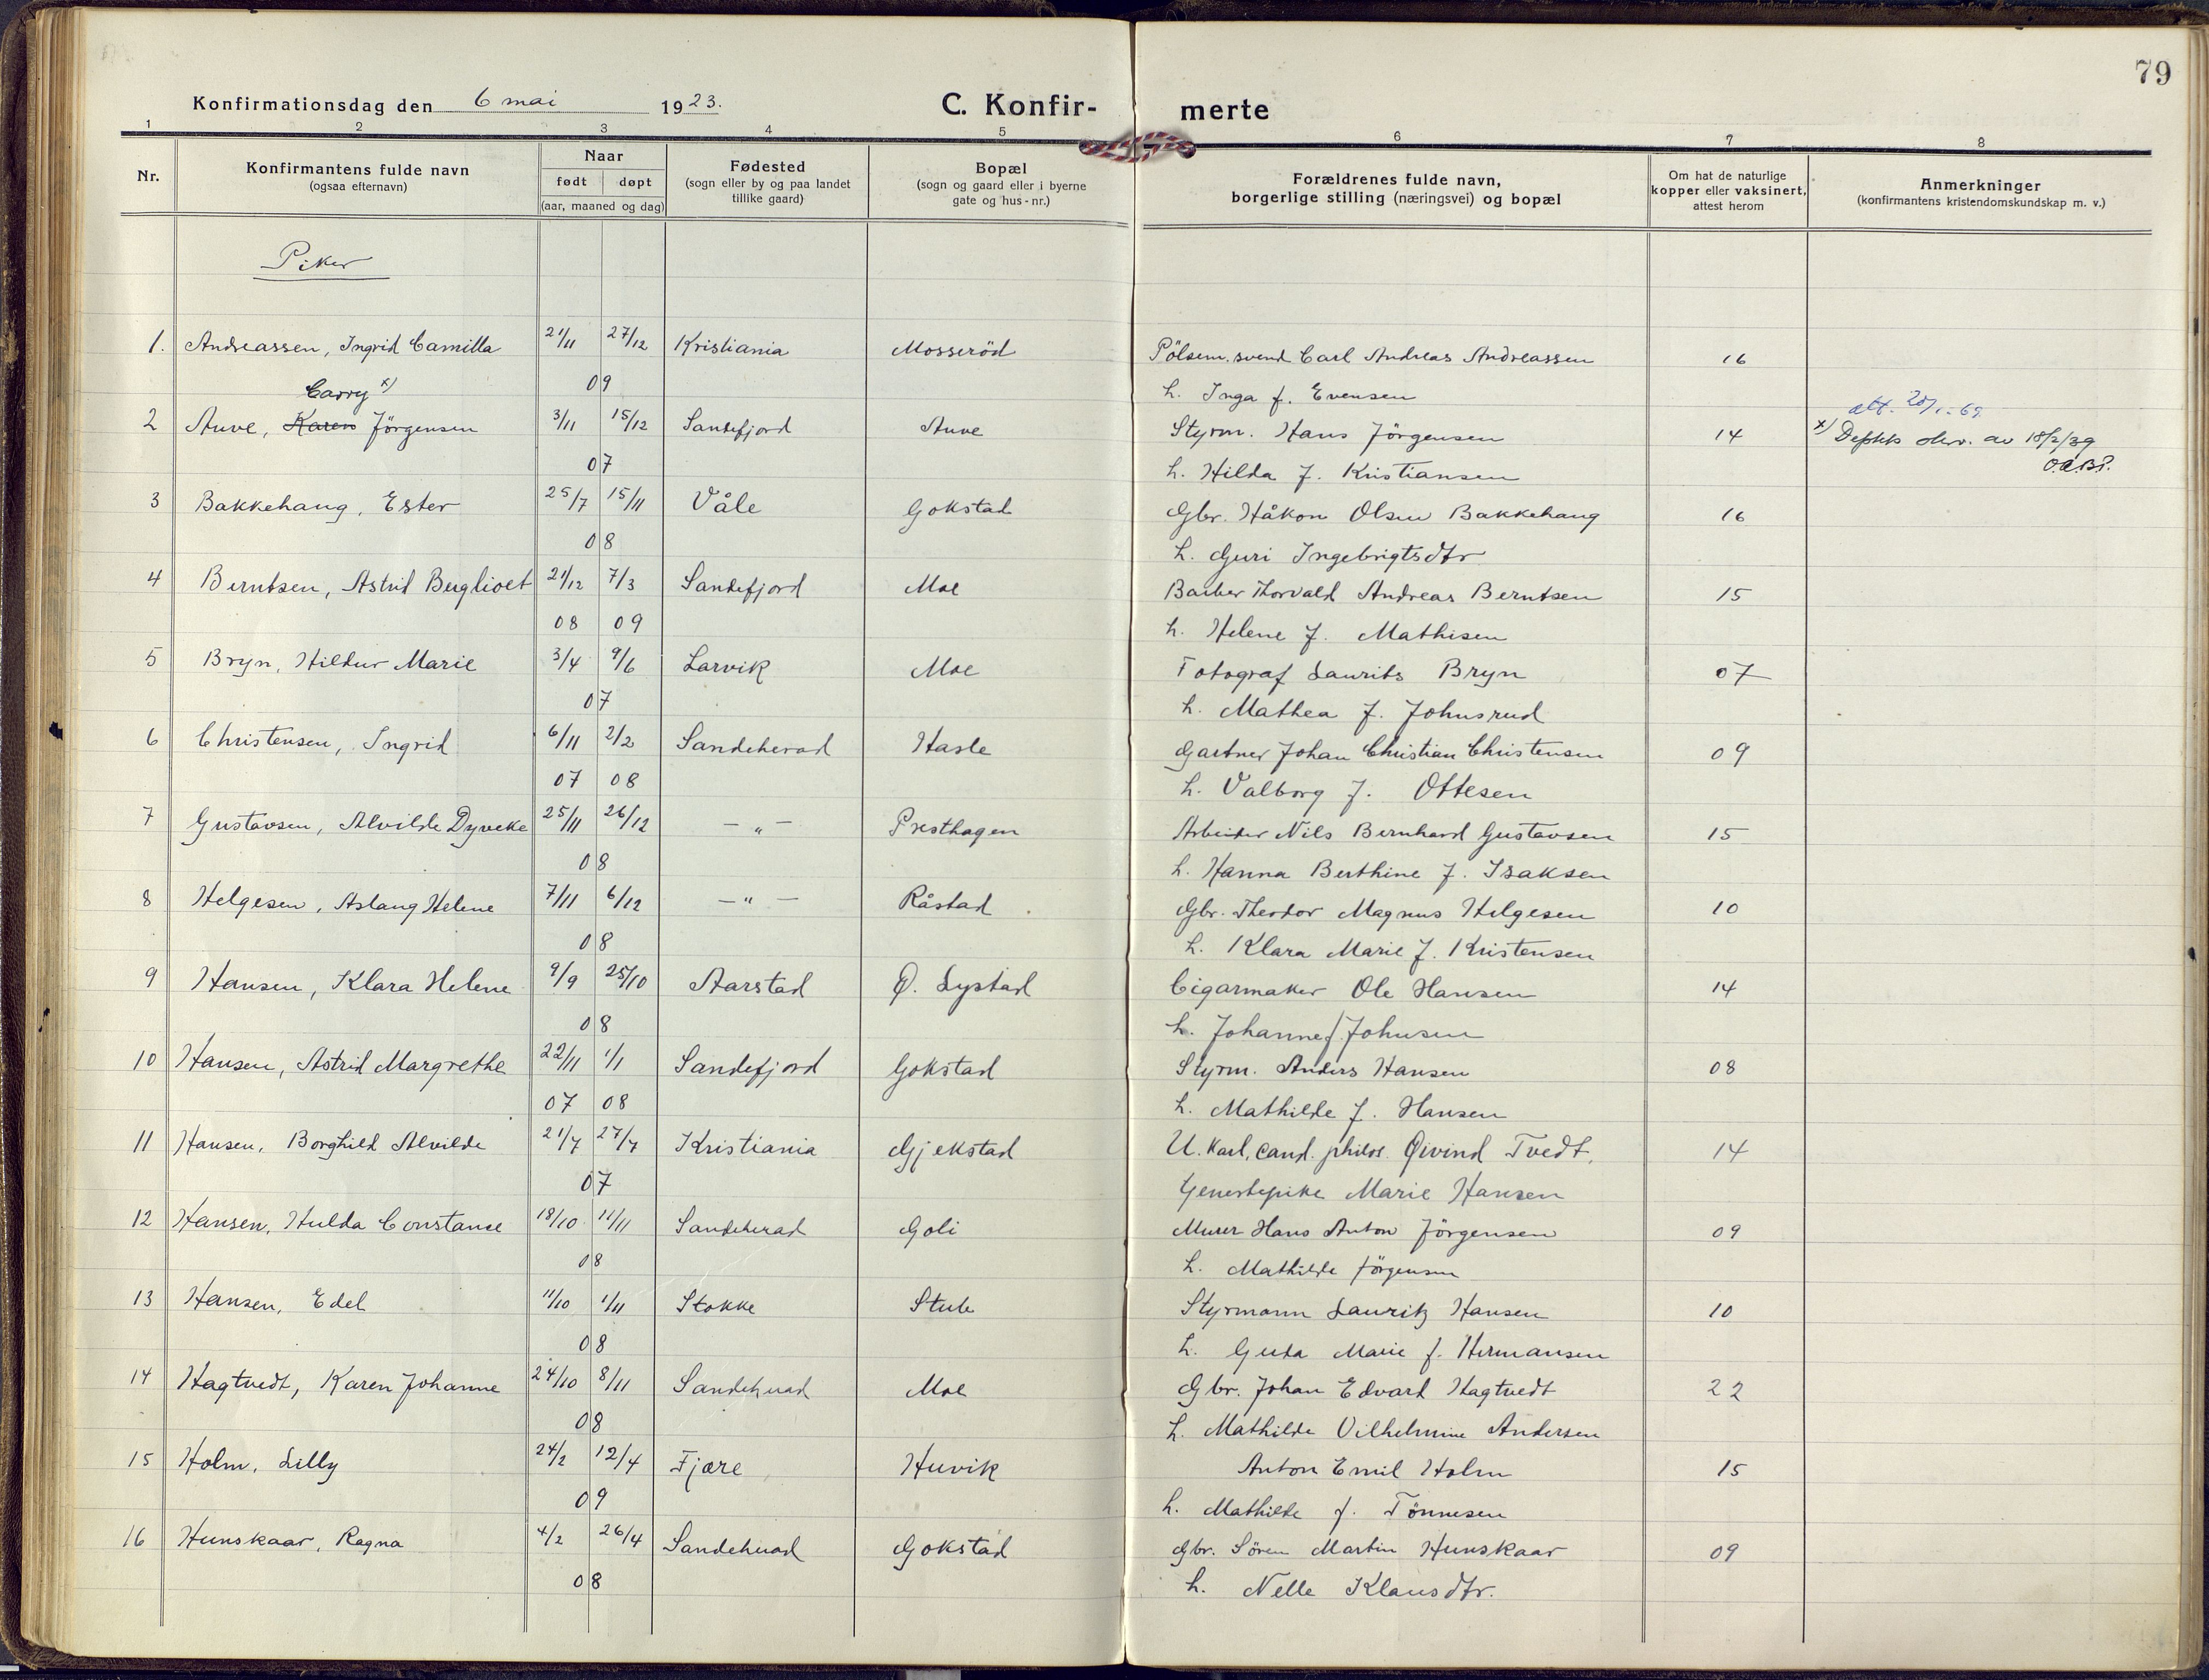 79
Konfirmationsdag den 6 mai 1923.
C. Konfir- merte
1 2 3 4 5 6 7 8
Nr.
Konfirmantens fulde navn
(ogsaa efternavn)
Naar
født døpt
(aar, maaned og dag)
Fødested
(sogn eller by og paa landet
tillike gaard)
Bopæl
(sogn og gaard eller i byerne
gate og hus-nr.)
Forældrenes fulde navn,
borgerlige stilling (næringsvei) og bopæl
Om hat de naturlige
kopper eller vaksinert,
attest herom
Anmerkninger
(konfirmantens kristendomskundskap m. v.)
Piker
1. Andreassen, Ingrid Camilla 21/11 27/12 Kristiania Mosseröd Pölsem. svend Carl Andreas Andreassen 16
09 h. Inga f. Evensen
Carry x)
att. 20/1-69
2 Auve, Karen Jörgensen 3/11 15/12 Sandefjord Auve Styrm. Hans Jörgensen 14 x) Depts skr. av 18/2/39
07 h. Hilda f. Kristiansen O.A.B?.
3 Bakkehaug, Ester 25/7 15/11 Våle Gokstad Gbr. Håkon Olsen Bakkehaug 16
08 h. Guri Ingebrigtsdtr
4 Berntsen, Astrid Bergliot 21/12 7/3 Sandefjord Moe Barber Thorvald Andreas Berntsen 15
08 09 h. Helene f. Mathisen
5 Bryn, Hildur Marie 3/4 9/6 Larvik Moe Fotograf Laurits Bryn 07
07 h. Mathea f. Johnsrud
6 Christensen, Ingrid 6/11 2/2 Sandeherad Hasle Gartner Johan Christian Christensen 09
07 08 h. Valborg f. Ottesen
7 Gustavsen, Alvilde Dyveke 25/11 26/12 — „ — Presthagen Arbeider Nils Bernhard Gustavsen 15
08 h. Hanna Berthine f. Isaksen
8 Helgesen, Aslaug Helene 7/11 6/12 — „ — Råstad Gbr. Theodor Magnus Helgesen 10
08 h. Klara Marie f. Kristensen
9 Hansen, Klara Helene 9/9 25/10 Aarstad Ø. Lystad Cigarmaker Ole Hansen 14
08 h. Johanne f. Johnsen
10 Hansen, Astrid Margrethe 22/11 1/1 Sandefjord Gokstad Styrm. Anders Hansen 08
07 08 h. Mathilde f. Hansen
11 Hansen, Borghild Alvilde 21/7 27/7 Kristiania Gjekstad U. Karl, cand. philos. Øivind Tvedt, 14
07 Tjenestepike Marie Hansen
12 Hansen, Hulda Constanse 18/10 11/11 Sandeherad Goli Murer Hans Anton Jörgensen 09
08 h. Mathilde Jörgensen
13 Hansen, Edel 11/10 1/11 Stokke Stub Styrmann Lauritz Hansen 10
08 h. Guda Marie f. Hermansen
14 Hagtvedt, Karen Johanne 24/10 8/11 Sandeherad Moe Gbr. Johan Edvard Hagtvedt 22
08 h. Mathilde Vilhelmine Andersen
15 Holm, Lilly 24/2 12/4 Fjære Huvik Anton Emil Holm 15
09 h. Mathilde f. Tönnesen
16 Hunskaar, Ragna 4/2 26/4 Sandeherad Gokstad Gbr. Sören Martin Hunskaar 09
08 h. Nelle Klausdtr.